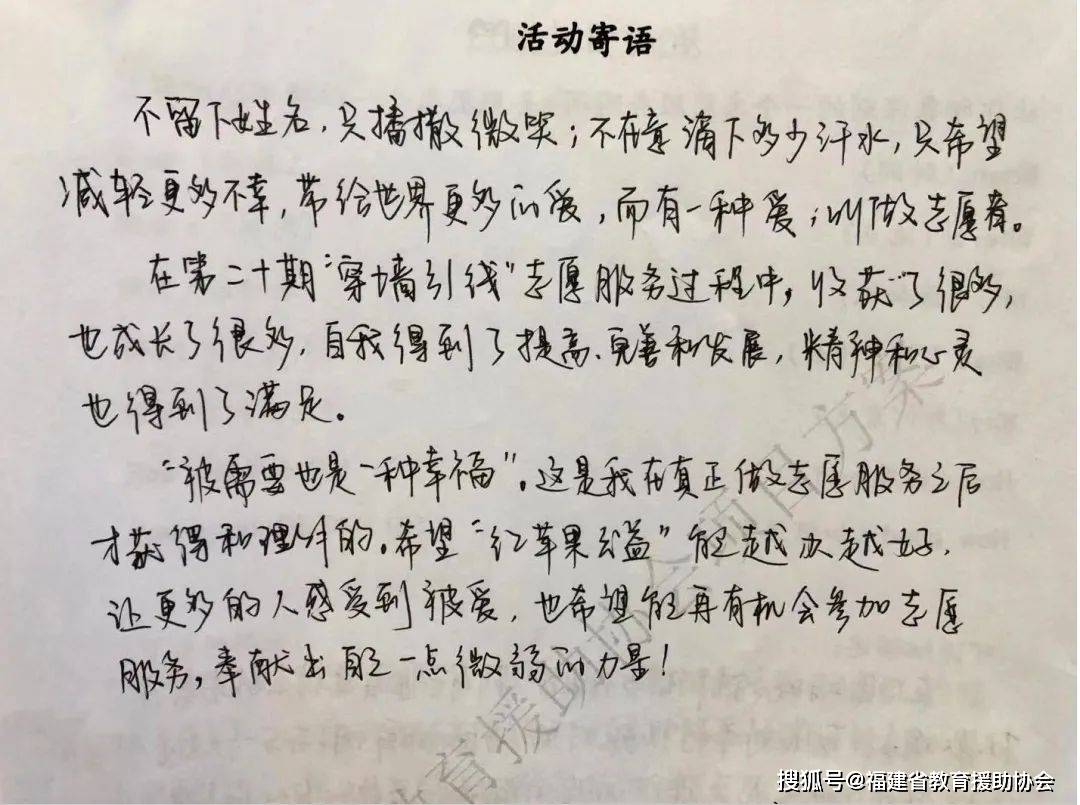 活动寄语
不留下姓名，只播撒微笑；不在意滴下多少汗水，只希望
减轻更多不幸，带给世界更多的爱，而有一种爁；叫做志愿者。
在第二十期“穿墙引线”志愿服务过程中，收获了很多，
也成长了很多，自我得到了提高、完善和发展，精神和心灵
也得到了满足。
“被需要也是一种幸福”。这是我在真正做志愿服务之后
才获得和理解的。希望“红苹果公益”能越办越好，
让更多的人感受到被爱，也希望能再有机会参加志愿
服务，奉献出自己一点微弱的力量！
育援助协会 方案
搜狐号@福建省教育援助协会